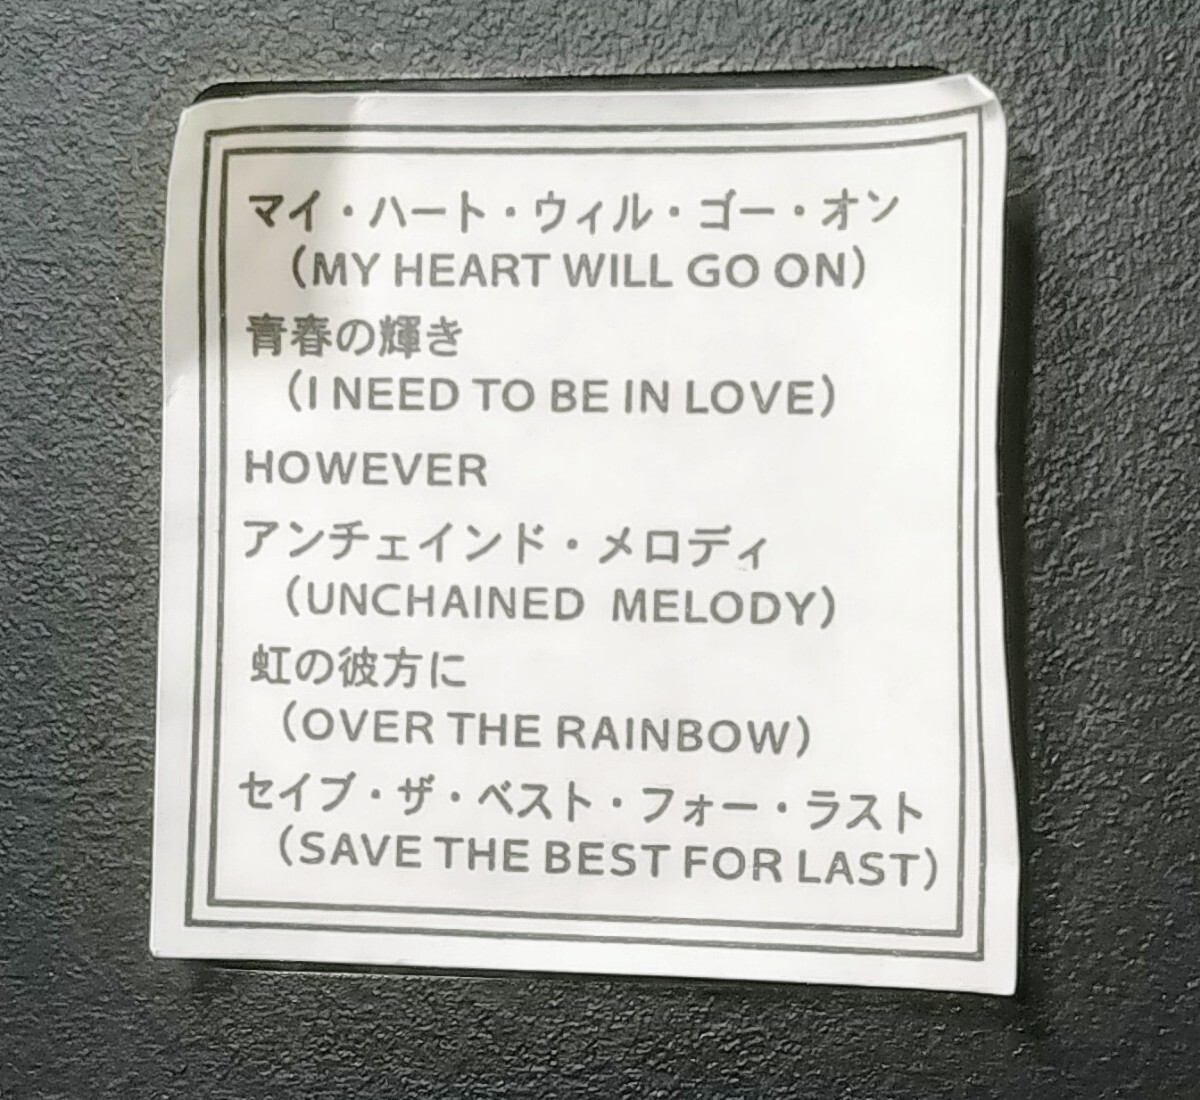 マイ・ハート・ウィル・ゴー・オン
（MY HEART WILL GO ON）
青春の輝き
（I NEED TO BE IN LOVE）
HOWEVER
アンチェインド・メロディ
（UNCHAINED MELODY）
虹の彼方に
（OVER THE RAINBOW）
セイブ・ザ・ベスト・フォー・ラスト
（SAVE THE BEST FOR LAST）